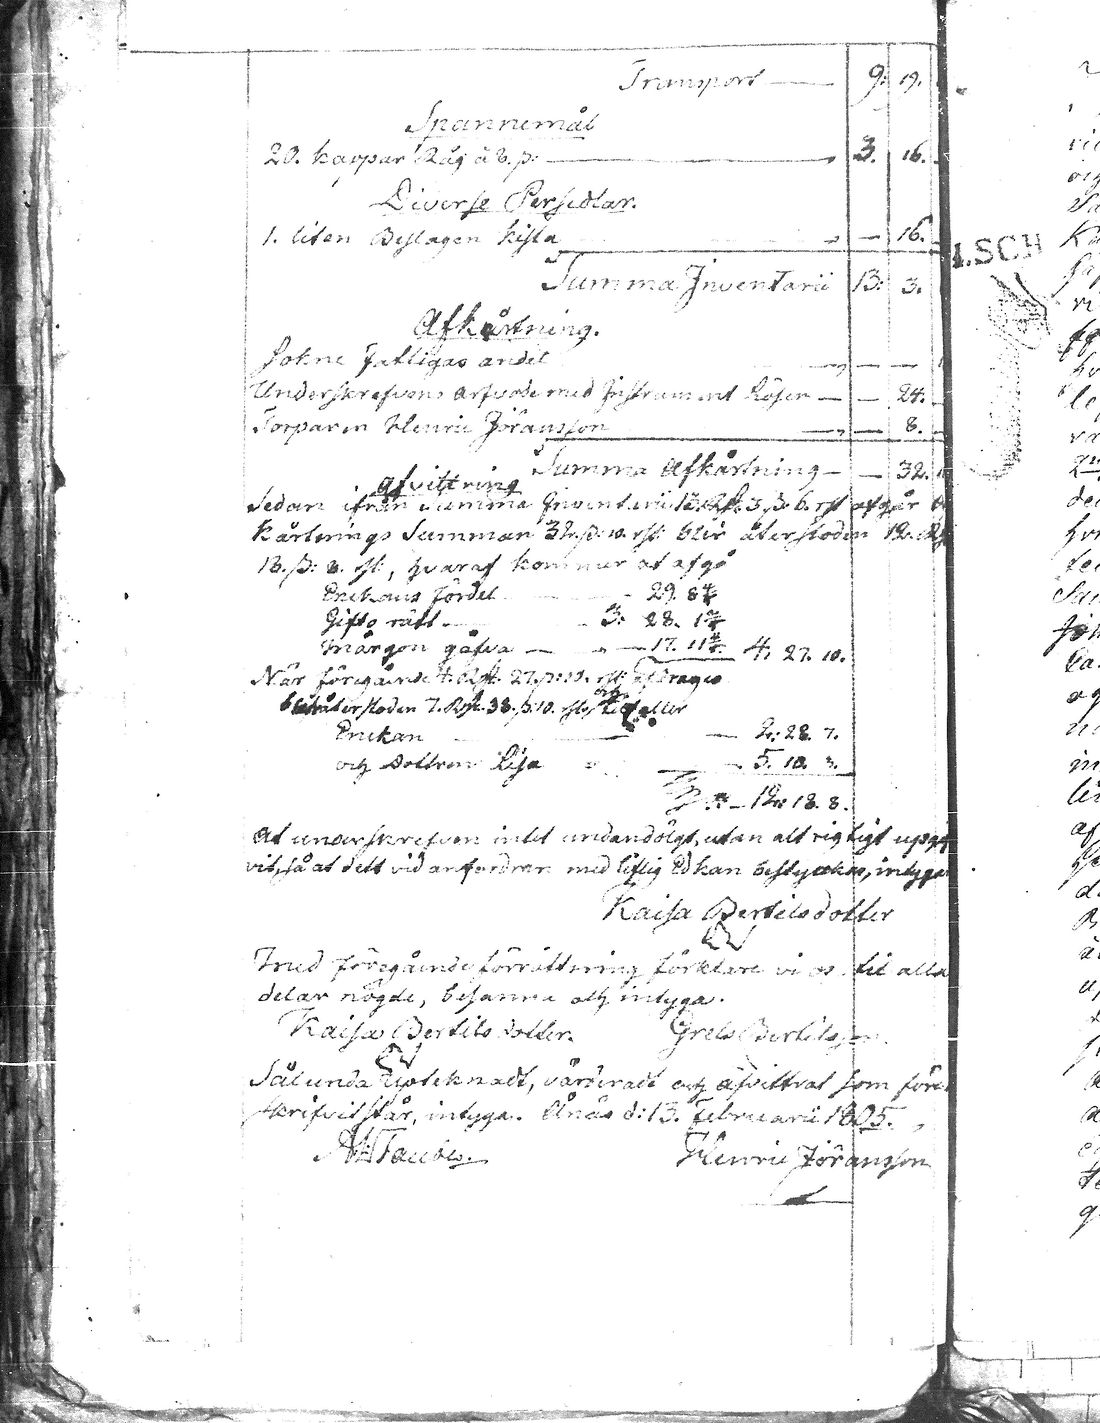 Transport — 9: 19.
Spannemål
20. kappar Råg à 8. ß: — 3. 16.
Diverse Persedlar.
1. liten Beslagen kista — 16.
Summa Inventarii 13: 3.
Afkårtning.
Sokne fattigas andel
Underskrefvens arfvode med Instrument Lösen — — 24.
Torparen Henric Jöransson — — 8.
Summa Afkårtning — — 32.
Afvittring
Sedan ifrån Summa Inventarii 13. Rd. 3. ß. 6. rst afgår
kårtnings Summan 32. ß: 10. rst: blir återstoden 12.
18. ß: 8. rst:, hvaraf kommer at afgå
Enckans fördel — 29. 8
Gifto rätt — 3: 28. 1
Mårgon gåfva — 17. 11 4. 27. 10.
När föregående 4. Rd. 27. ß: 10. rst: afdrages
återstoden 7. Rd. 38. ß. 10. rst.
Enckan — 2: 28. 7.
och dottren Lisa 5. 10. 3.
12: 18. 8.
At underskrefven intet undandölgt, utan alt rigtigt uppgif
vit, så at dett vid anfordran med liflig Ed kan bestyrckas, intygar
Kaisa Bertilsdotter
Med föregående förrättning förklare vi os til alla
delar nögde, besanna och intyga.
Kaisa Bertilsdotter. Grels Bertilsson.
Sålunda upteknadt, värderadt och afvittrat som före
skrifvit står, intyga.Ånäs d: 13. Februarii 1805.
Henric Jöransson